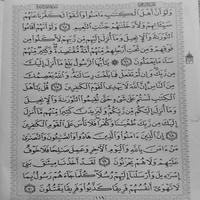 وَلَوْ أَنَّ أَهْلَ ٱلْكِتَٰبِ ءَامَنُوا۟ وَٱتَّقَوْا۟ لَكَفَّرْنَا عَنْهُمْ
سَيِّـَٔاتِهِمْ وَلَأَدْخَلْنَٰهُمْ جَنَّٰتِ ٱلنَّعِيمِ ۝٦٥ وَلَوْ أَنَّهُمْ أَقَامُوا۟
ٱلتَّوْرَىٰةَ وَٱلْإِنجِيلَ وَمَآ أُنزِلَ إِلَيْهِم مِّن رَّبِّهِمْ لَأَكَلُوا۟ مِن
فَوْقِهِمْ وَمِن تَحْتِ أَرْجُلِهِم مِّنْهُمْ أُمَّةٌ مُّقْتَصِدَةٌ وَكَثِيرٌ مِّنْهُمْ
سَآءَ مَا يَعْمَلُونَ ۝٦٦ يَٰٓأَيُّهَا ٱلرَّسُولُ بَلِّغْ مَآ أُنزِلَ إِلَيْكَ
مِن رَّبِّكَ وَإِن لَّمْ تَفْعَلْ فَمَا بَلَّغْتَ رِسَالَتَهُۥ وَٱللَّهُ يَعْصِمُكَ
مِنَ ٱلنَّاسِ إِنَّ ٱللَّهَ لَا يَهْدِى ٱلْقَوْمَ ٱلْكَٰفِرِينَ ۝٦٧ قُلْ يَٰٓأَهْلَ
ٱلْكِتَٰبِ لَسْتُمْ عَلَىٰ شَىْءٍ حَتَّىٰ تُقِيمُوا۟ ٱلتَّوْرَىٰةَ وَٱلْإِنجِيلَ
وَمَآ أُنزِلَ إِلَيْكُم مِّن رَّبِّكُمْ وَلَيَزِيدَنَّ كَثِيرًا مِّنْهُم مَّآ أُنزِلَ
إِلَيْكَ مِن رَّبِّكَ طُغْيَٰنًا وَكُفْرًا فَلَا تَأْسَ عَلَى ٱلْقَوْمِ ٱلْكَٰفِرِينَ
۝٦٨ إِنَّ ٱلَّذِينَ ءَامَنُوا۟ وَٱلَّذِينَ هَادُوا۟ وَٱلصَّٰبِـُٔونَ وَٱلنَّصَٰرَىٰ
مَنْ ءَامَنَ بِٱللَّهِ وَٱلْيَوْمِ ٱلْءَاخِرِ وَعَمِلَ صَٰلِحًا فَلَا خَوْفٌ
عَلَيْهِمْ وَلَا هُمْ يَحْزَنُونَ ۝٦٩ لَقَدْ أَخَذْنَا مِيثَٰقَ بَنِىٓ
إِسْرَٰٓءِيلَ وَأَرْسَلْنَآ إِلَيْهِمْ رُسُلًا كُلَّمَا جَآءَهُمْ رَسُولٌۢ بِمَا
لَا تَهْوَىٰٓ أَنفُسُهُمْ فَرِيقًا كَذَّبُوا۟ وَفَرِيقًا يَقْتُلُونَ ۝٧٠